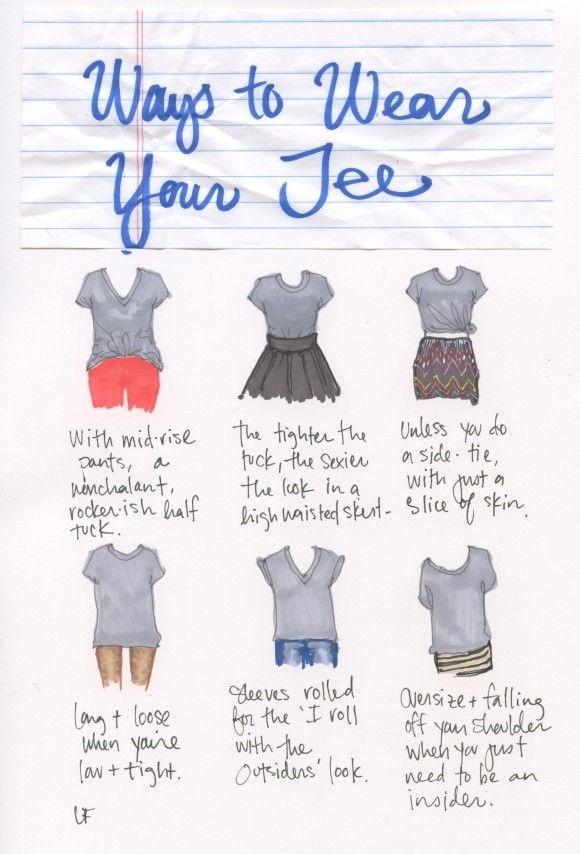 Ways to Wear
Your Tee
With mid-rise
pants, a
nonchalant,
rocker-ish half
tuck.
The tighter the
tuck, the sexier
the look in a
high waisted skirt-
Unless you do
a side-tie,
with just a
slice of skin.
Long + loose
when you're
low + tight.
Sleeves rolled
for the 'I roll
with the
Outsiders' look.
Oversize + falling
off your shoulder
when you just
need to be an
insider.